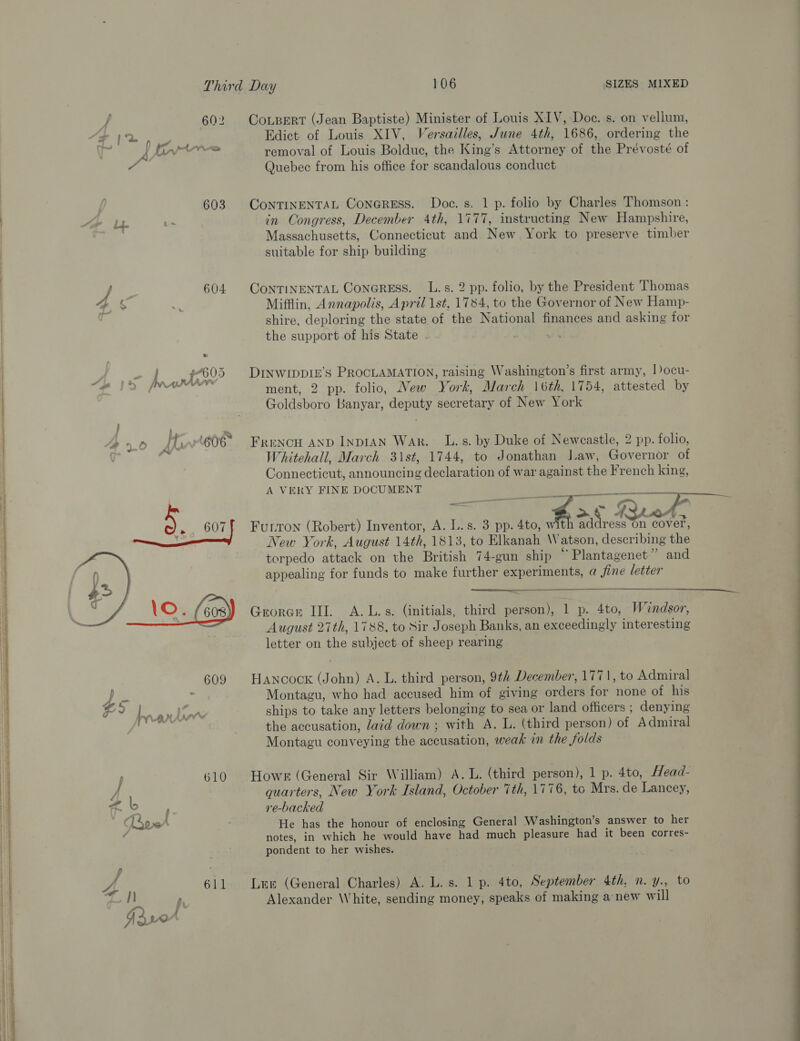 Third Day 106 SIZES MIXED
602 COLBERT (Jean Baptiste) Minister of Louis XIV, Doc. s. on vellum,
Edict of Louis XIV, Versailles, June 4th, 1686, ordering the
removal of Louis Bolduc, the King's Attorney of the Prévosté of
Quebec from his office for scandalous conduct
603 CONTINENTAL CONGRESS. Doc. s. 1 p. folio by Charles Thomson:
in Congress, December 4th, 1777, instructing New Hampshire,
Massachusetts, Connecticut and New York to preserve timber
suitable for ship building
604 CONTINENTAL CONGRESS. L. s. 2 pp. folio, by the President Thomas
Mifflin, Annapolis, April 1st, 1784, to the Governor of New Hamp-
shire, deploring the state of the National finances and asking for
the support of his State
605 DINWIDDIE'S PROCLAMATION, raising Washington's first army, Docu-
ment, 2 pp. folio, New York, March 16th, 1754, attested by
Goldsboro Banyar, deputy secretary of New York
606 FRENCH AND INDIAN WAR. L. s. by Duke of Newcastle, 2 pp. folio,
Whitehall, March 31st, 1744, to Jonathan Law, Governor of
Connecticut, announcing declaration of war against the French king,
A VERY FINE DOCUMENT
5. 607 FULTON (Robert) Inventor, A. L. s. 3 pp. 4to, with address on cover,
New York, August 14th, 1813, to Elkanah Watson, describing the
torpedo attack on the British 74-gun ship "Plantagenet" and
appealing for funds to make further experiments, a fine letter
10. 608 GEORGE III. A. L. s. (initials, third person), 1 p. 4to, Windsor,
August 27th, 1788, to Sir Joseph Banks, an exceedingly interesting
letter on the subject of sheep rearing
609 HANCOCK (John) A. L. third person, 9th December, 1771, to Admiral
Montagu, who had accused him of giving orders for none of his
ships to take any letters belonging to sea or land officers; denying
the accusation, laid down; with A. L. (third person) of Admiral
Montagu conveying the accusation, weak in the folds
610 HOWE (General Sir William) A. L. (third person), 1 p. 4to, Head-
quarters, New York Island, October 7th, 1776, to Mrs. de Lancey,
re-backed
He has the honour of enclosing General Washington's answer to her
notes, in which he would have had much pleasure had it been corres-
pondent to her wishes.
611 LEE (General Charles) A. L. s. 1 p. 4to, September 4th, n. y., to
Alexander White, sending money, speaks of making a new will